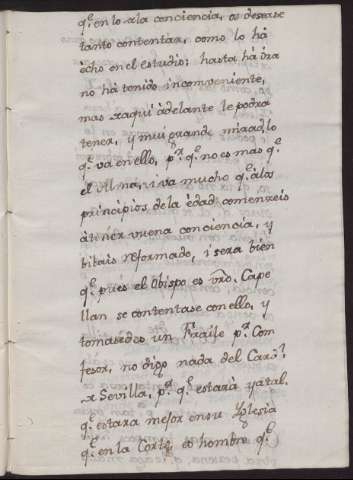 q.e en lo xla conciencia, os desease
tanto contentar, como lo há
écho en el estudio; hasta há óra
no há tenido inconveniente,
mas xaquí adelante le podra
tener, y mui grande mirad, lo
q.e va en ello, p.r q.e no es mas q.e
el Alma, i va mucho q.e alos
principios, de la édad, comenzeis
átener vuena conciencia, y
bibais reformado, i sera bien
q.e pués el Obispo es vro. Cape
llan se contentase con ello, y
tomasedes un Fraile p.a Con
fesor, no digo nada del Car.l
x Sevilla, p.r q.e estará ya tal,
q.e estara mejor en su Yglesia
q.e en la Corte, es hombre q.e